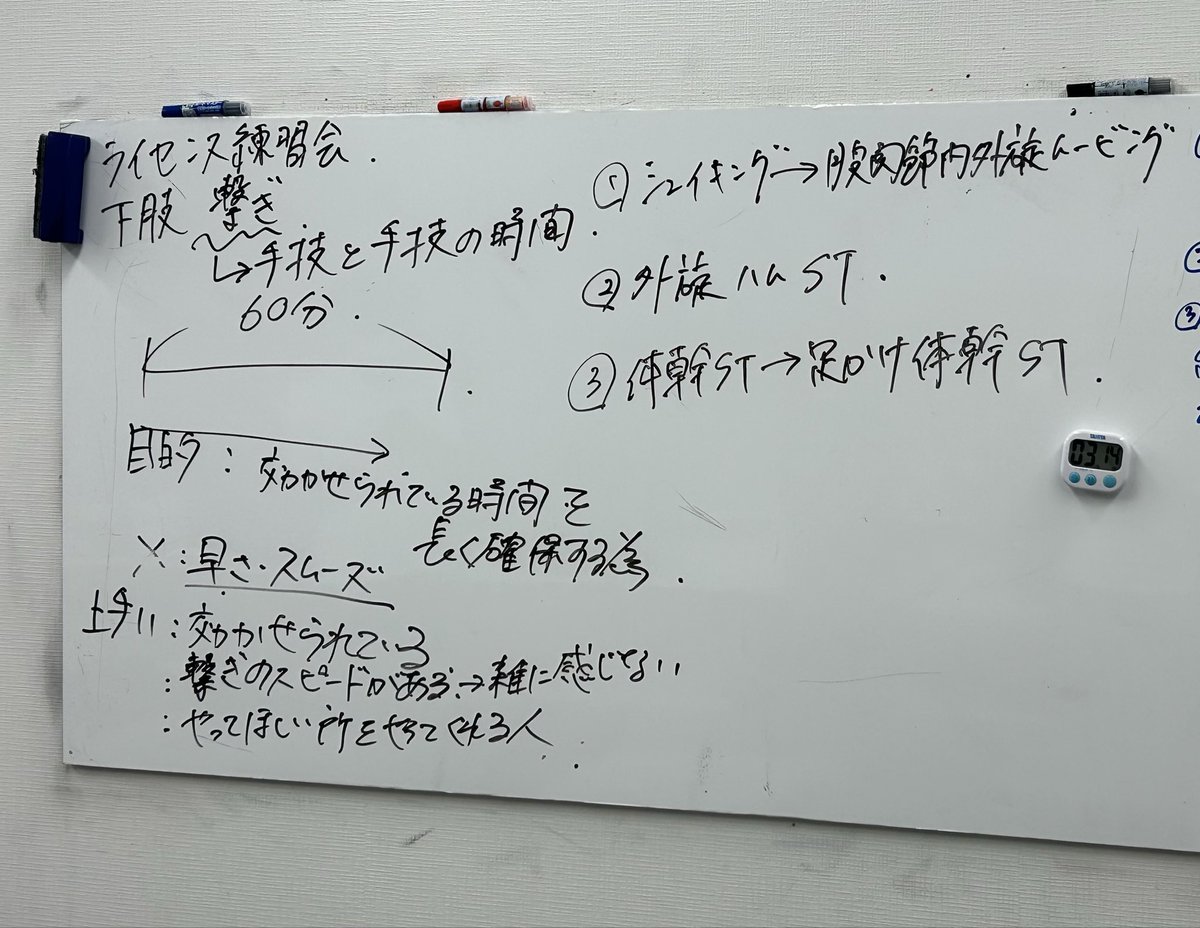 ライセンス練習会.
下肢 繋ぎ
↳手技と手技の時間.
60分.
目的: 効かせられている時間を
長く確保する為.
×:早さ・スムーズ
上手い:効かせられている
:繋ぎのスピードがある→雑に感じない
:やってほしい所をやってくれる人
①シェイキング→股関節内外旋ムービング
②外旋ハムST.
③体幹ST→足かけ体幹ST.
TANITA
03 14
③